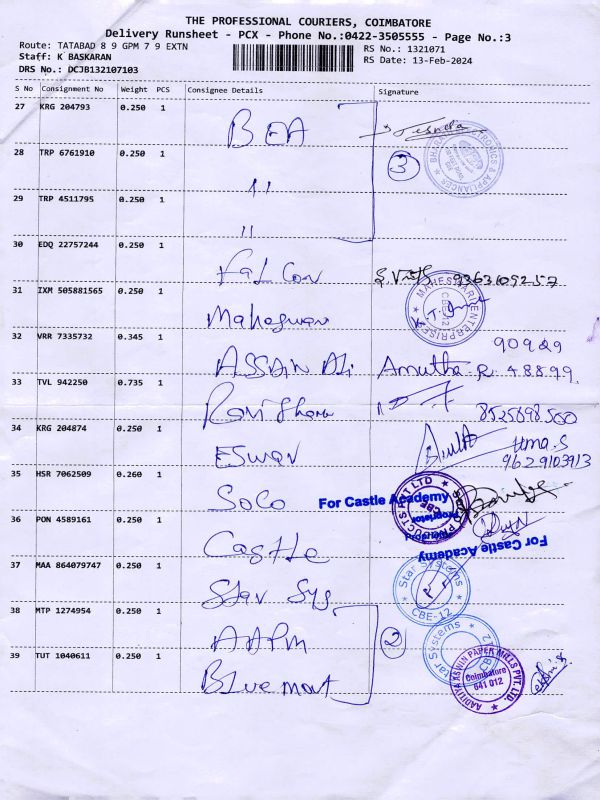 THE PROFESSIONAL COURIERS, COIMBATORE
Delivery Runsheet - PCX - Phone No.:0422-3505555 - Page No.:3
Route: TATABAD 8 9 GPM 7 9 EXTN
RS No.: 1321071
Staff: K BASKARAN
RS Date: 13-Feb-2024
DRS No.: DCJB132107103
S No Consignment No Weight PCS Consignee Details Signature
27 KRG 204793 0.250 1 BEA
28 TRP 6761910 0.250 1 " 3
29 TRP 4511795 0.250 1 "
30 EDQ 22757244 0.250 1 Falcon
31 IXM 505881565 0.250 1 Maheswari
MAHESWARI ENTERPRISES CBE-12
32 VRR 7335732 0.345 1 ASSAIN Ali Amutha R 90929 48899
33 TVL 942250 0.735 1 8525898500
34 KRG 204874 0.250 1 ESWAR Uma.S
9629103913
35 HSR 7062509 0.260 1 SOCO
For Castle Academy
Proprietor
36 PON 4589161 0.250 1 Castle
For Castle Academy
37 MAA 864079747 0.250 1 Star Sys
Star Systems CBE-12
38 MTP 1274954 0.250 1 AAPM 2
Star Systems
39 TUT 1040611 0.250 1 Blue mont
AADITYA ASWIN PAPER MILLS PVT. LTD. Coimbatore 641 012